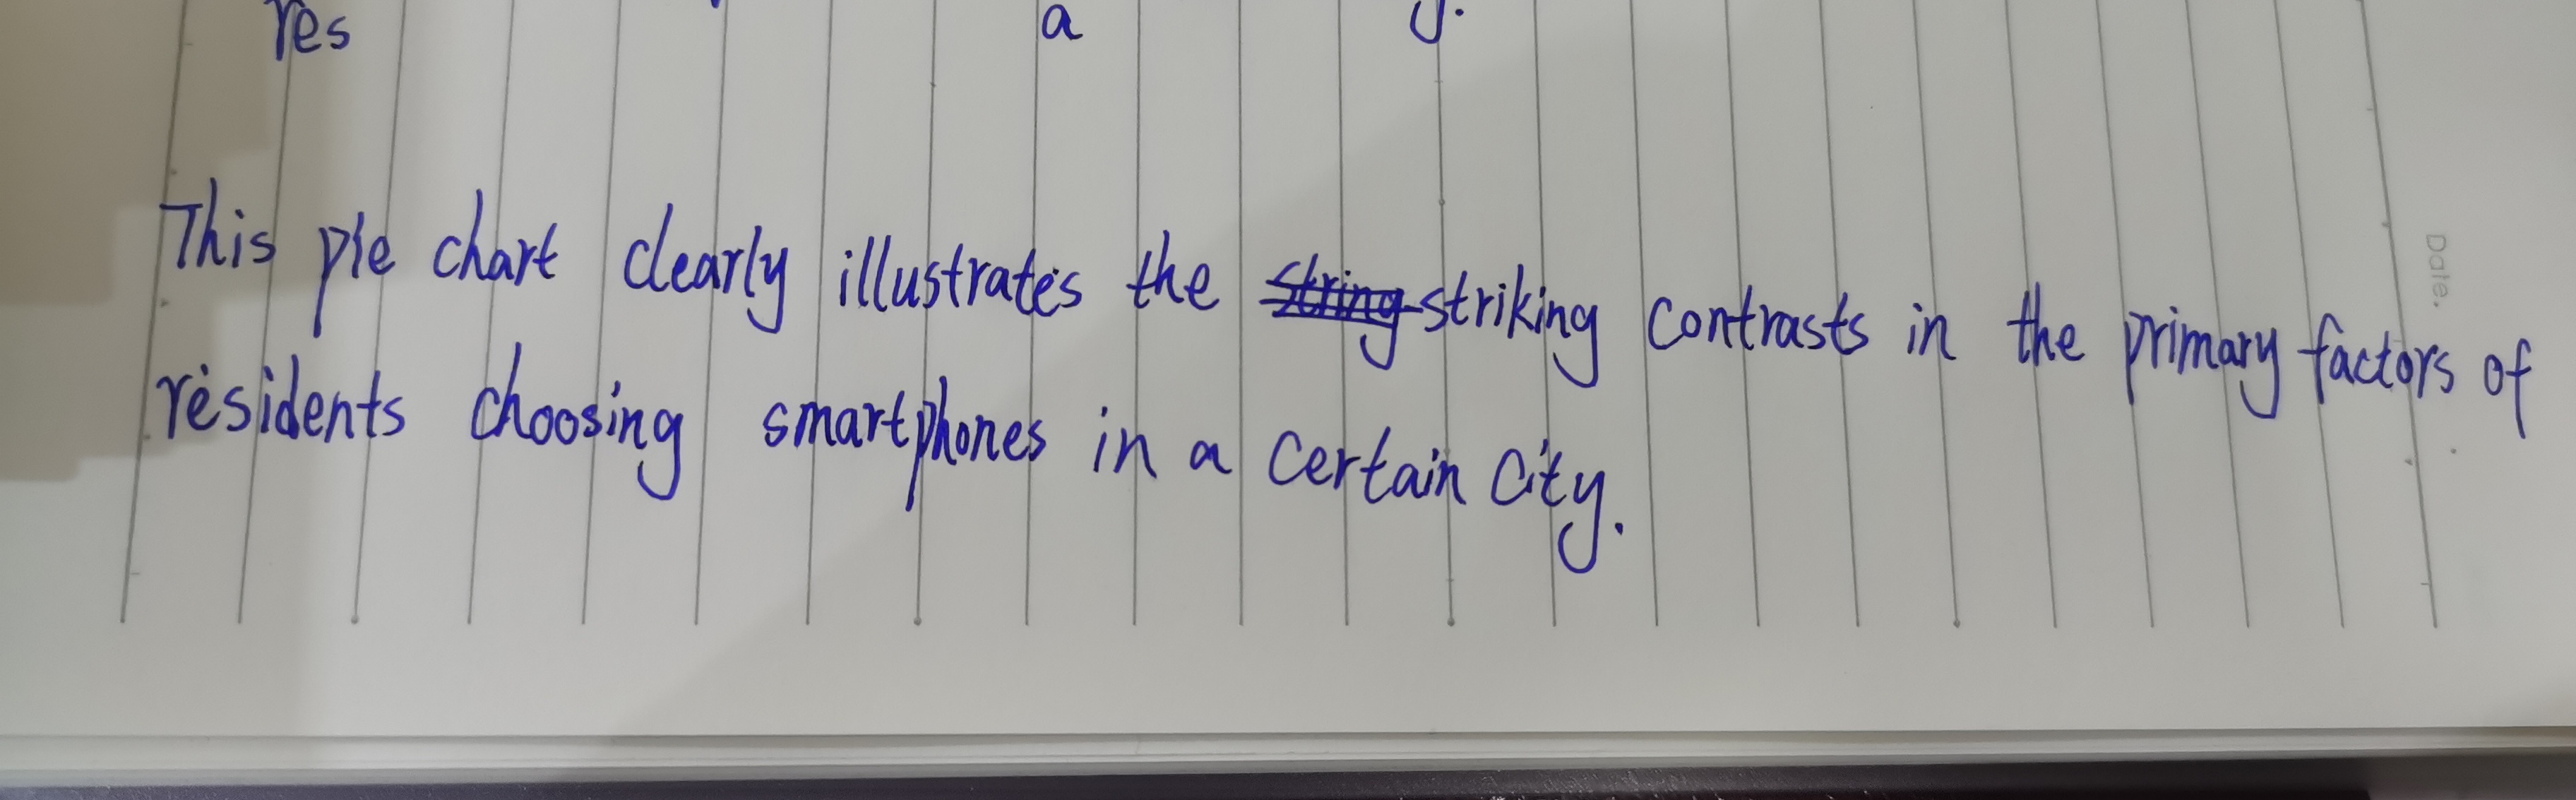 res a y.
This pie chart clearly illustrates the string striking contrasts in the primary factors of
residents choosing smartphones in a certain city.
Date.